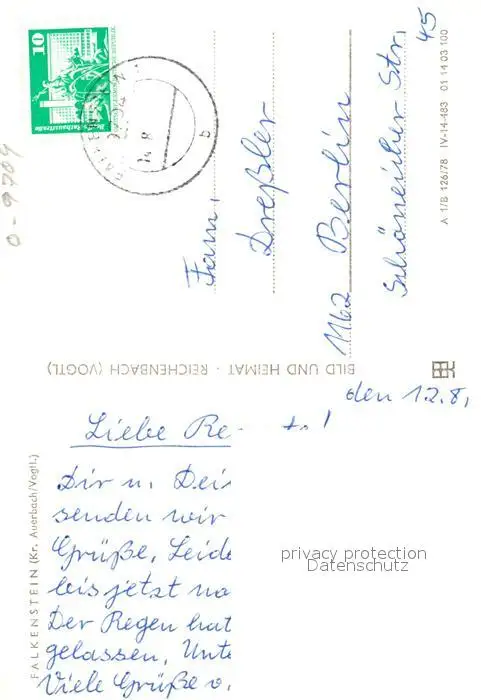 10
Berlin, Rathausstraße
14.8.
b
0-9709
Fam.
Dreßler
1162 Berlin
Schöneicher Str. 45
A 1/B 126/78 IV-14-483 01 14 03 100
BILD UND HEIMAT · REICHENBACH (VOGTL)
den 12.8.
Liebe Re
Dir u. Dei
senden wir
Grüße, Leide
bis jetzt na
Der Regen hat
gelassen, Unte
Viele Grüße v.
FALKENSTEIN (Kr. Auerbach/Vogtl.)
privacy protection
Datenschutz